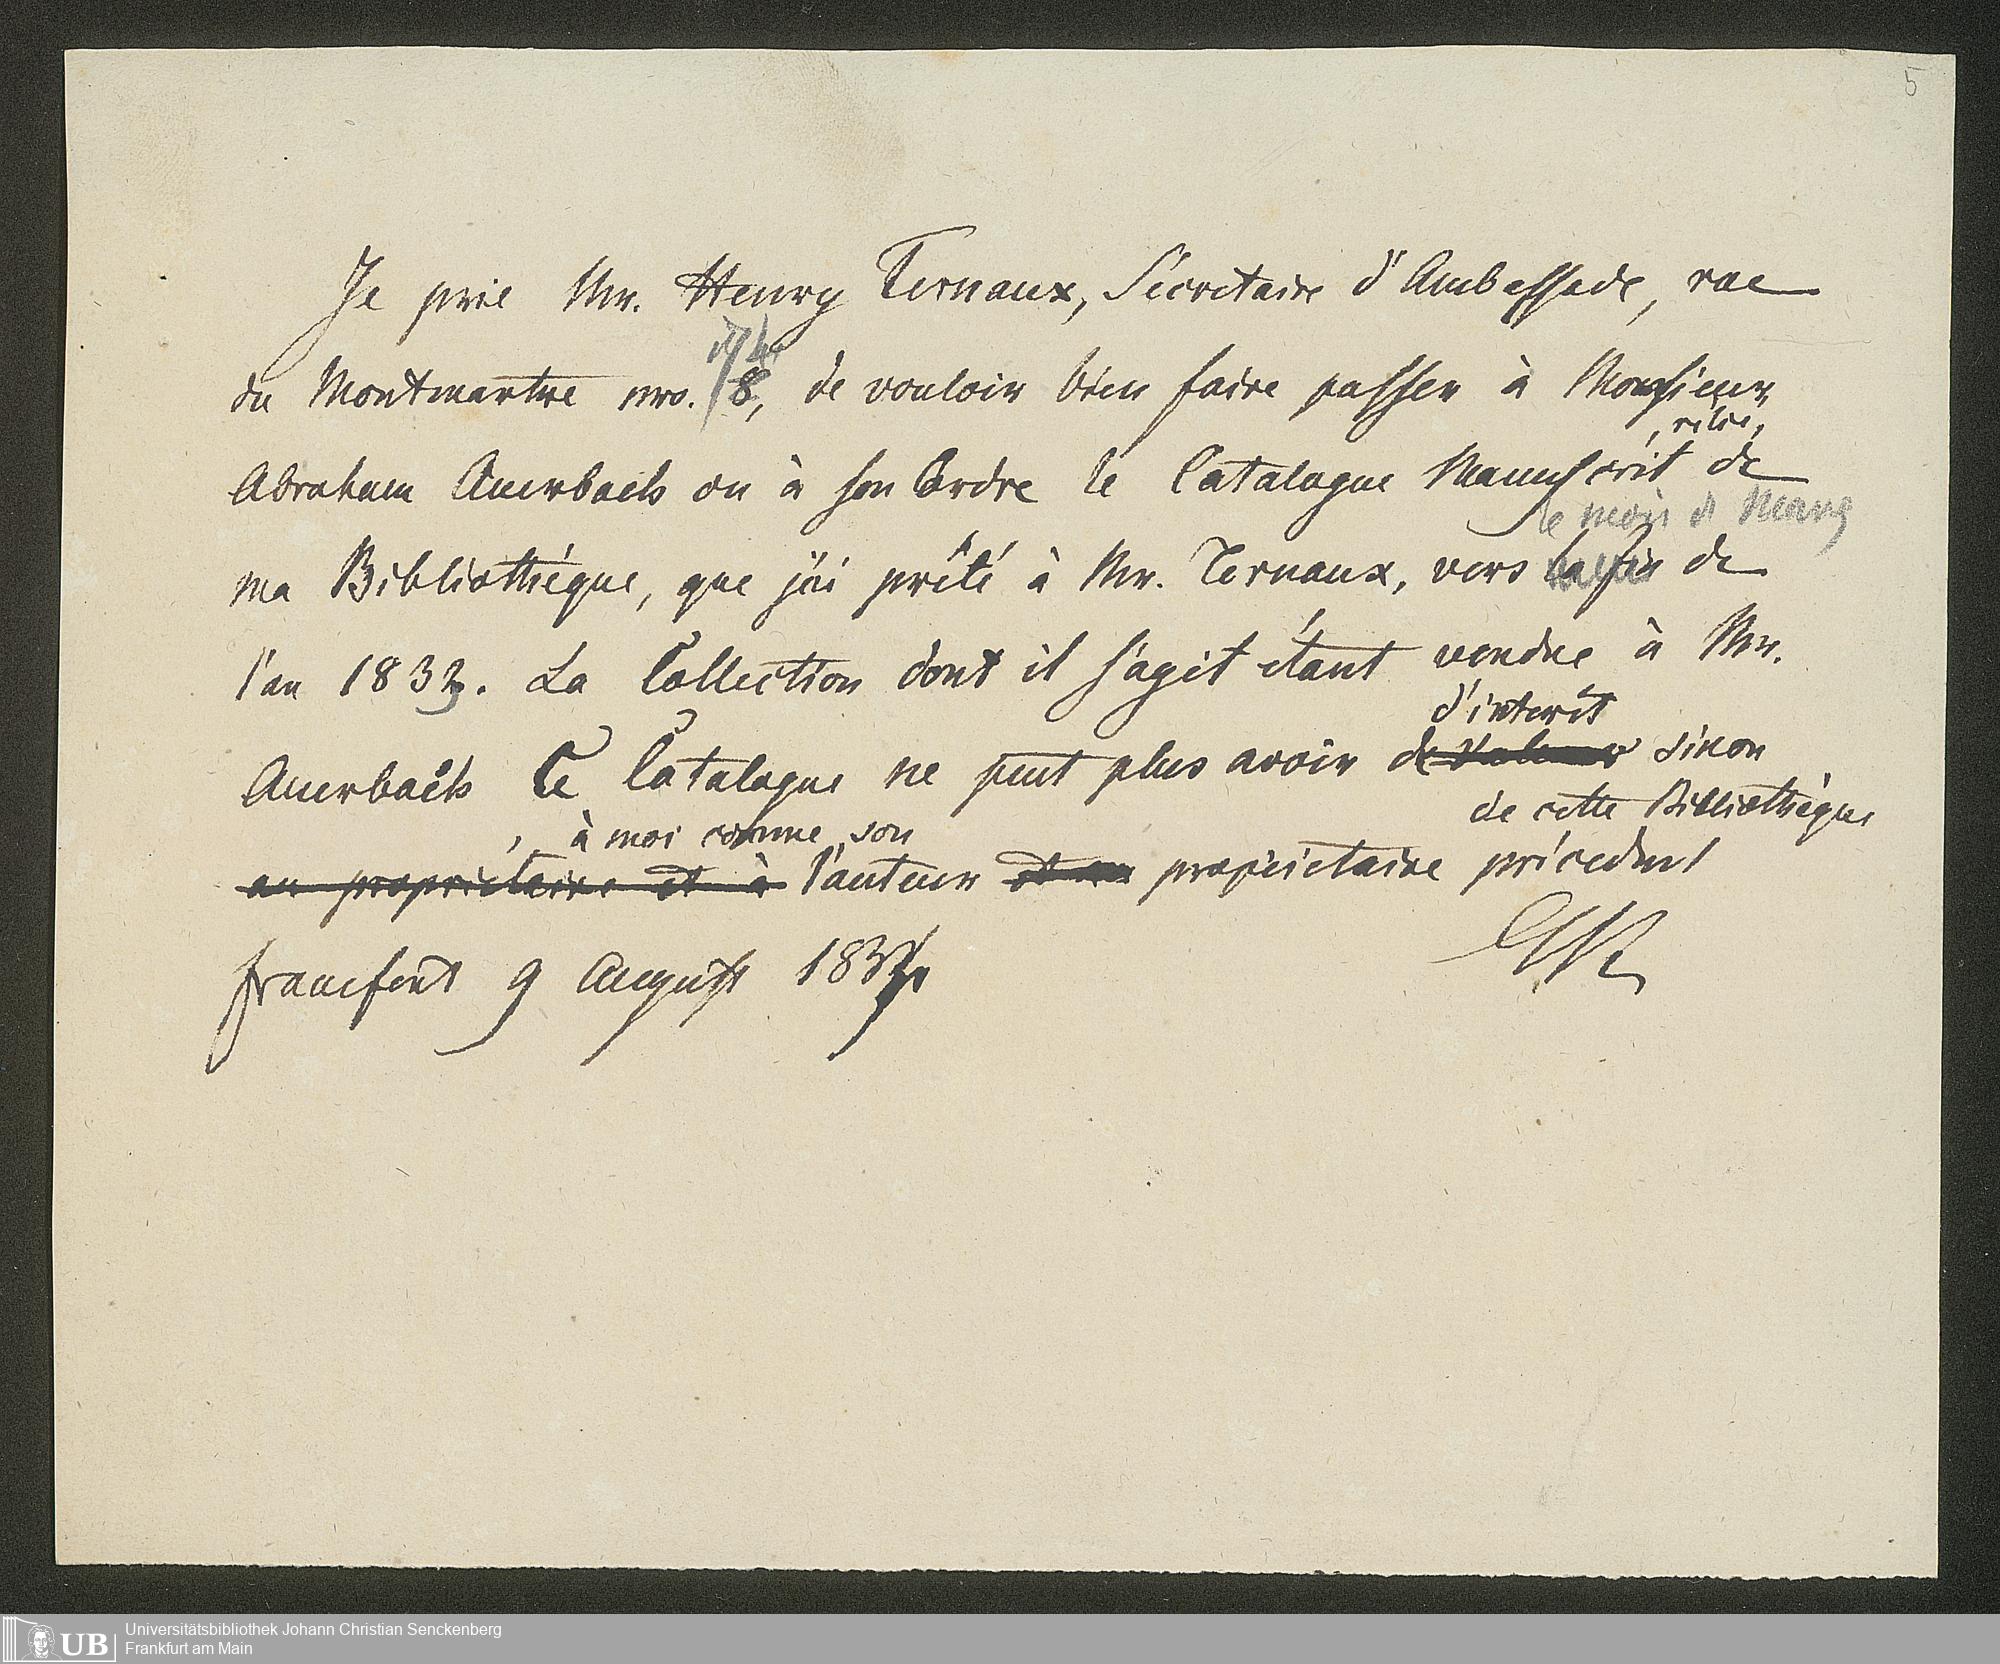 5
Je prie Mr. Henry Ternaux, Sécretaire d'Ambassade, rue
du Montmartre nro. 8, de vouloir bien faire passer à Monsieur
, rélié,
Abraham Auerbach ou à son Ordre le Catalogue Manuscrit de
le mois d Mars
ma Bibliothéque, que j'ai prêté à Mr. Ternaux, vers la fin de
l'an 1833. La Collection dont il s'agit étant vendue à Mr.
d'interêt
Auerbach Ce Catalogue ne peut plus avoir de valeur sinon
de cette Bibliothéque
, à moi comme son
au proprietaire et à l'auteur et au propriétaire précedent
francfort 9 August 1834
Universitätsbibliothek Johann Christian Senckenberg
UB Frankfurt am Main